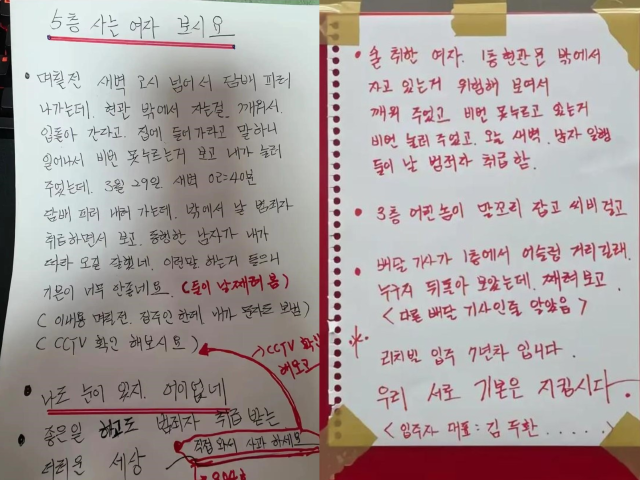 5층 사는 여자 보시요
• 며칠전 새벽 2시 넘어서 담배 피러
나가는데. 현관 밖에서 자는걸. 깨워서.
입돌아 간다고. 집에 들어가라고 말하니
일어나서 비번 못누르는거 보고 내가 눌러
주었는데. 3월 29일. 새벽 02:40분
담배 피러 내려 가는데. 밖에서 날 범죄자
취급하면서 보고. 동행한 남자가 내가
따라 오길 잘했네. 이런말 하는거 들으니
기분이 너무 안좋네요. (둘이 날 째려 봄)
( 이내용 며칠전. 집주인 한데. 내가 문자도 보냄)
( CCTV 확인 해보시요)
→CCTV 확인
해보고
• 나도 눈이 있지. 어이없네
좋은일 하고도 범죄자 취급 받는
직접 와서 사과 하세요
더러운 세상
• 술 취한 여자. 1층 현관문 밖에서
자고 있는거 위험해 보여서
깨워 주었고 비번 못누르고 있는거
비번 눌러 주었고. 오늘 새벽. 남자 일행
들이 날 범죄자 취급함.
• 3층 어떤놈이 말꼬리 잡고 씨비 걸고
• 배달 기사가 1층에서 어슬렁 거리길래.
누구지 뒤돌아 보았는데. 째려보고.
<다른 배달 기사인줄 알았음>
※ 리치빌 입주 7년차 입니다.
우리 서로 기본은 지킵시다.
<입주자 대표: 김두환......>